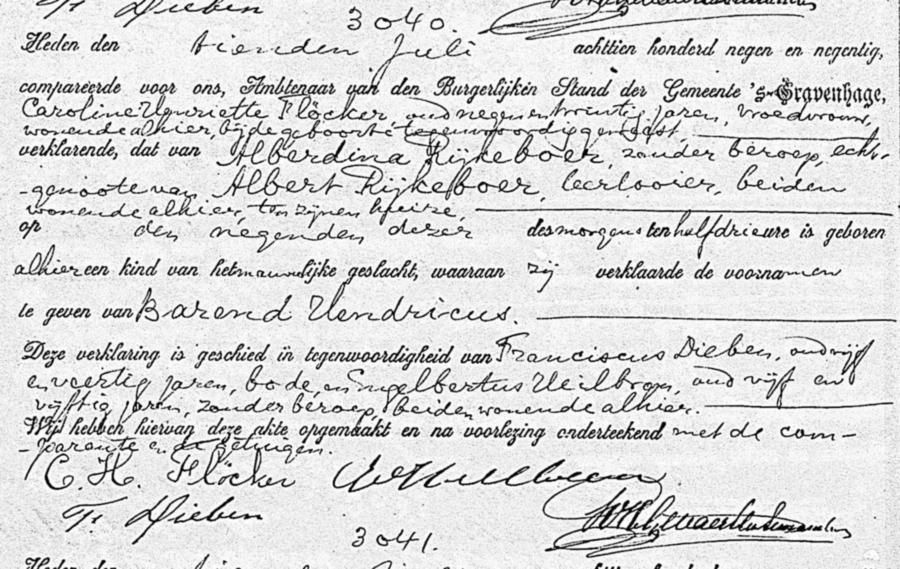 Fr Dieben
3040.
Heden den tienden Juli achttien honderd negen en negentig,
compareerde voor ons, Ambtenaar van den Burgerlijken Stand der Gemeente 's-Gravenhage,
Caroline Henriette Flöcker, oud negen en twintig jaren, vroedvrouw,
wonende alhier, bij de geboorte tegenwoordig geweest
verklarende, dat van Alberdina Rijkeboer, zonder beroep, echt-
genoote van Albert Rijkeboer, leerlooier, beiden
wonende alhier, ten zijnen huize,
op den negenden dezer des morgens ten half drie ure is geboren
alhier een kind van het mannelijke geslacht, waaraan zij verklaarde de voornamen
te geven van Barend Hendricus.
Deze verklaring is geschied in tegenwoordigheid van Franciscus Dieben, oud vijf
en veertig jaren, bode, en Engelbertus Heilbron, oud vijf en
vijftig jaren, zonder beroep, beiden wonende alhier.
Wij hebben hiervan deze akte opgemaakt en na voorlezing onderteekend met de com-
parente en de getuigen.
C. H. Flöcker
Fr Dieben
3041.
Heden den